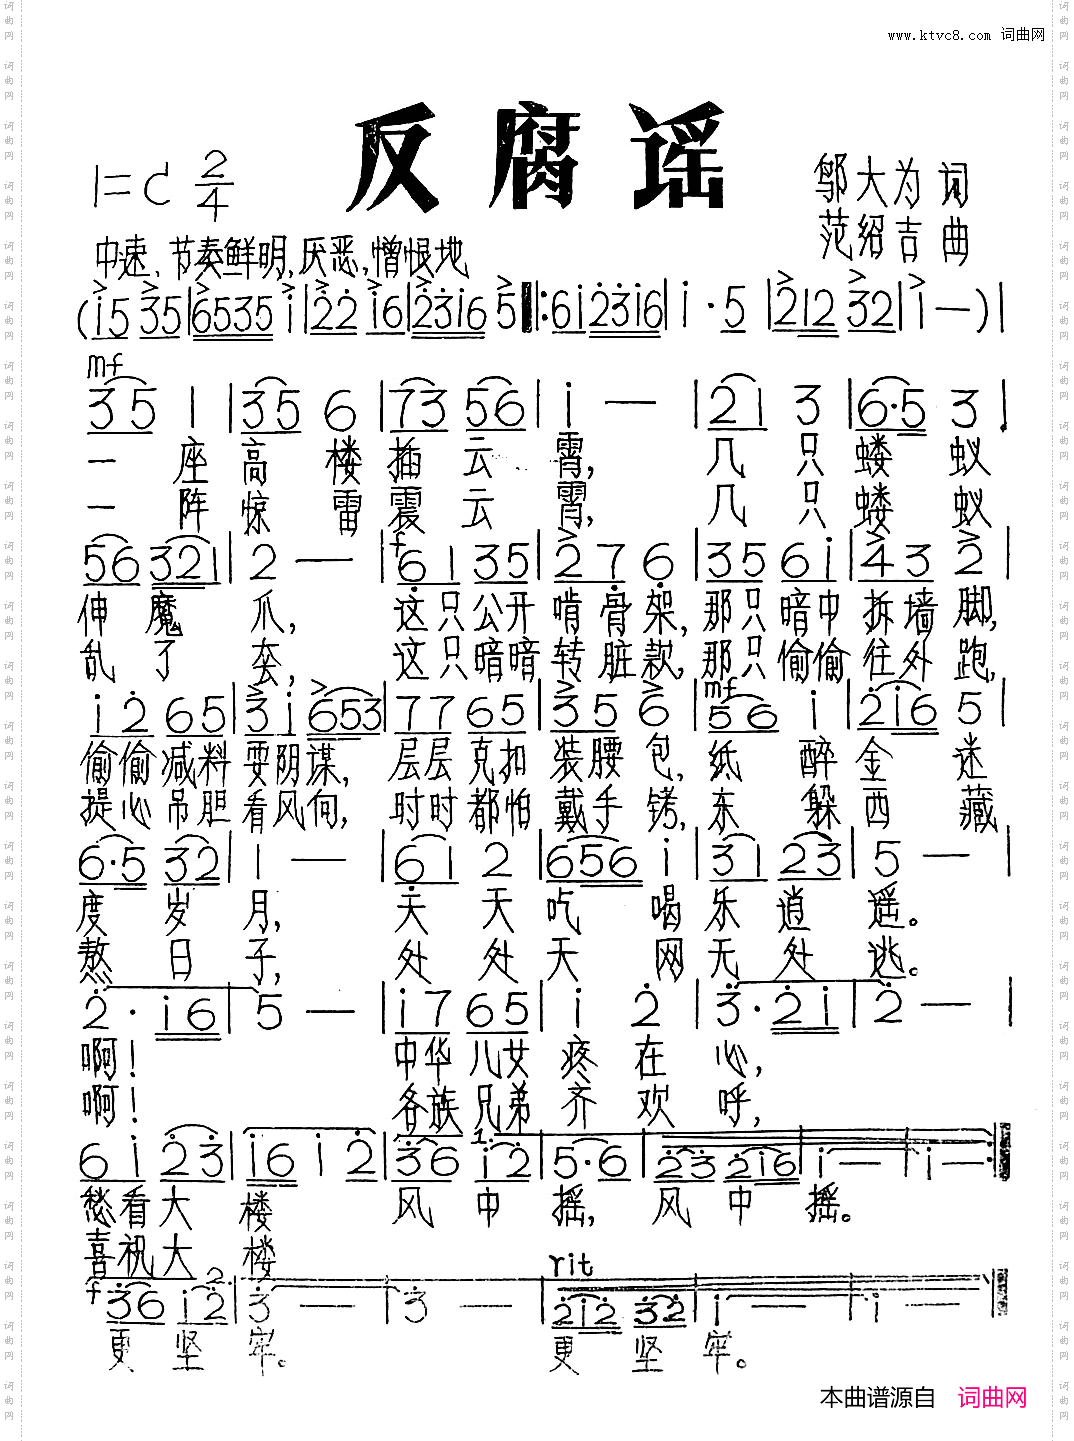 www.ktvc8.com 词曲网
反腐谣
1=C 2/4
邬大为 词
范绍吉 曲
中速、节奏鲜明,厌恶,憎恨地
(i5 35|6535 i|22 i6|23i6 5‖:6i 23i6|i·5|212 32|i—)|
mf
35 1|35 6|73 56|i —|21 3|6·5 3|
一座高楼插云霄,几只蝼蚁
一阵惊雷震云霄,几只蝼蚁
56 321|2 —|f 61 35|27 6|35 6i|43 2|
伸魔爪,这只公开啃骨架,那只暗中拆墙脚,
乱了套,这只暗暗转脏款,那只偷偷往外跑,
i2 65|3i 653|77 65|35 6|mf 56 i|2i6 5|
偷偷减料耍阴谋,层层克扣装腰包,纸醉金迷
提心吊胆看风向,时时都怕戴手铐,东躲西藏
6·5 32|1 —|61 2|656 i|31 23|5 —|
度岁月,天天吃喝乐逍遥。
熬日子,处处天网无处逃。
2·i6|5 —|i7 65|i 2|3·2i|2 —|
啊!中华儿女疼在心,
啊!各族兄弟齐欢呼,
6i 23|i6 i2|36 1. i2|5·6|23 2i6|i —|i —:‖
愁看大楼风中摇,风中摇。
喜祝大楼
rit
f 36 2. i2|3 —|3 —|2i2 32|i —|i —‖
更坚牢。更坚牢。
本曲谱源自 词曲网
词曲网